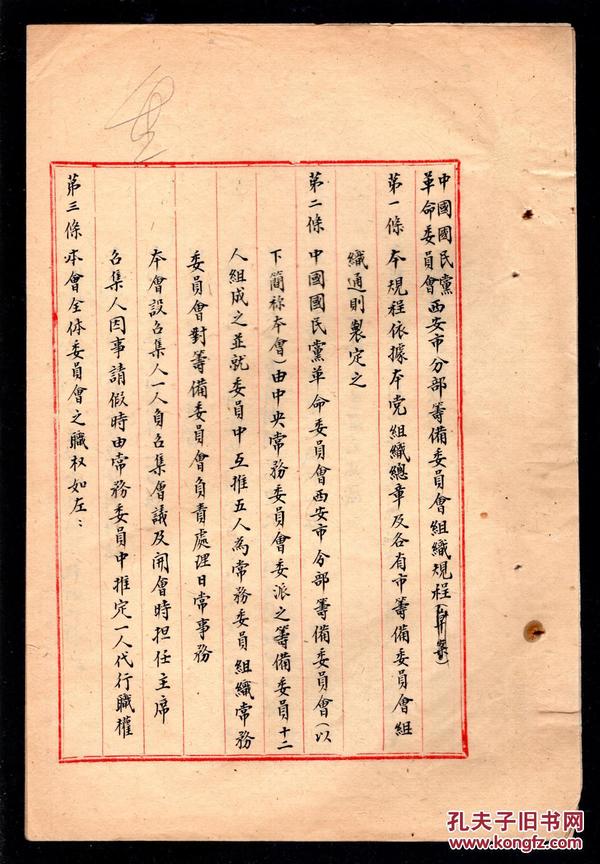 中國國民黨革命委員會西安市分部籌備委員會組織規程(草案)
第一條 本規程依據本党組織總章及各省市籌備委員會組
織通則製定之
第二條 中國國民黨革命委員會西安市分部籌備委員會(以
下簡称本會)由中央常務委員會委派之籌備委員十二
人組成之並就委員中互推五人為常務委員組織常務
委員會對籌備委員會負責處理日常事務
本會設召集人一人負召集會議及開會時担任主席
召集人因事請假時由常務委員中推定一人代行職權
第三條 本會全体委員會之職权如左：
孔夫子旧书网
www.kongfz.com